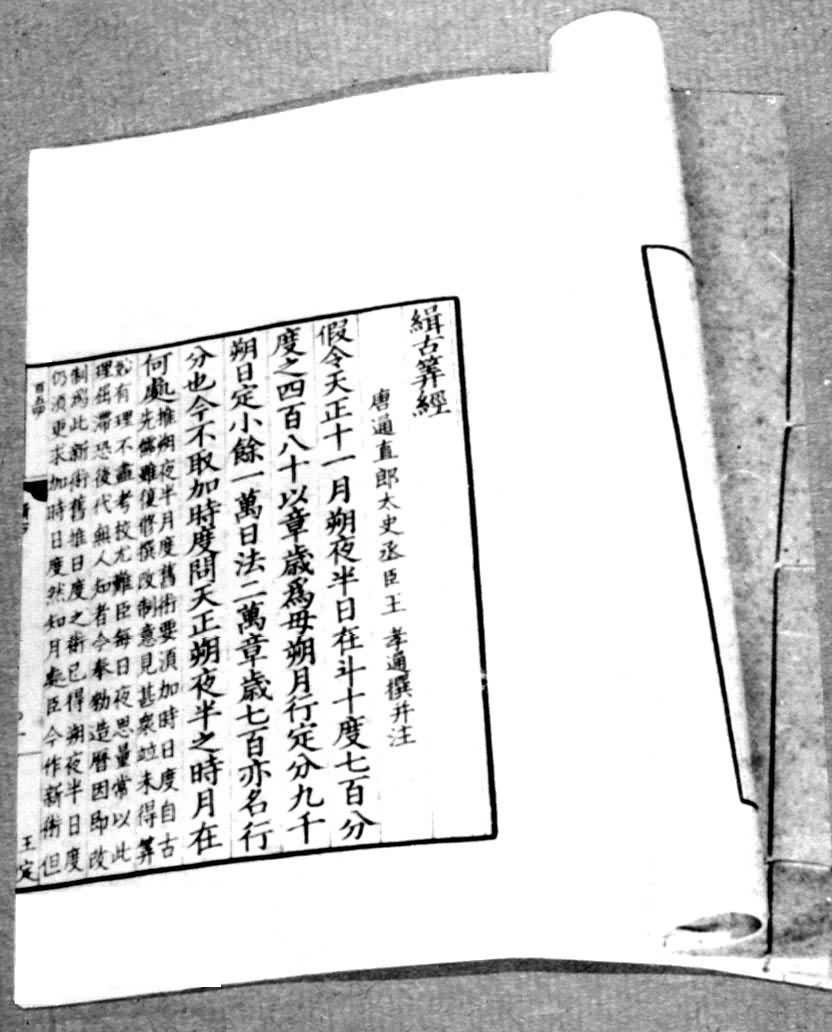 緝古筭經
唐通直郎太史丞臣王孝通撰并注
假令天正十一月朔夜半日在斗十度七百分
度之四百八十以章歲為母朔月行定分九千
朔日定小餘一萬日法二萬章歲七百亦名行
分也今不取加時度問天正朔夜半之時月在
何處
推朔夜半月度舊術要須加時日度自古
先儒雖復修撰改制意見甚衆竝未得筭
妙有理不盡考校尤難臣每日夜思量常以此
理屈滯恐後代無人知者今奉勑造曆因即改
制為此新術舊推日度之術已得朔夜半日度
仍須更求加時日度然知月處臣今作新術但
王定